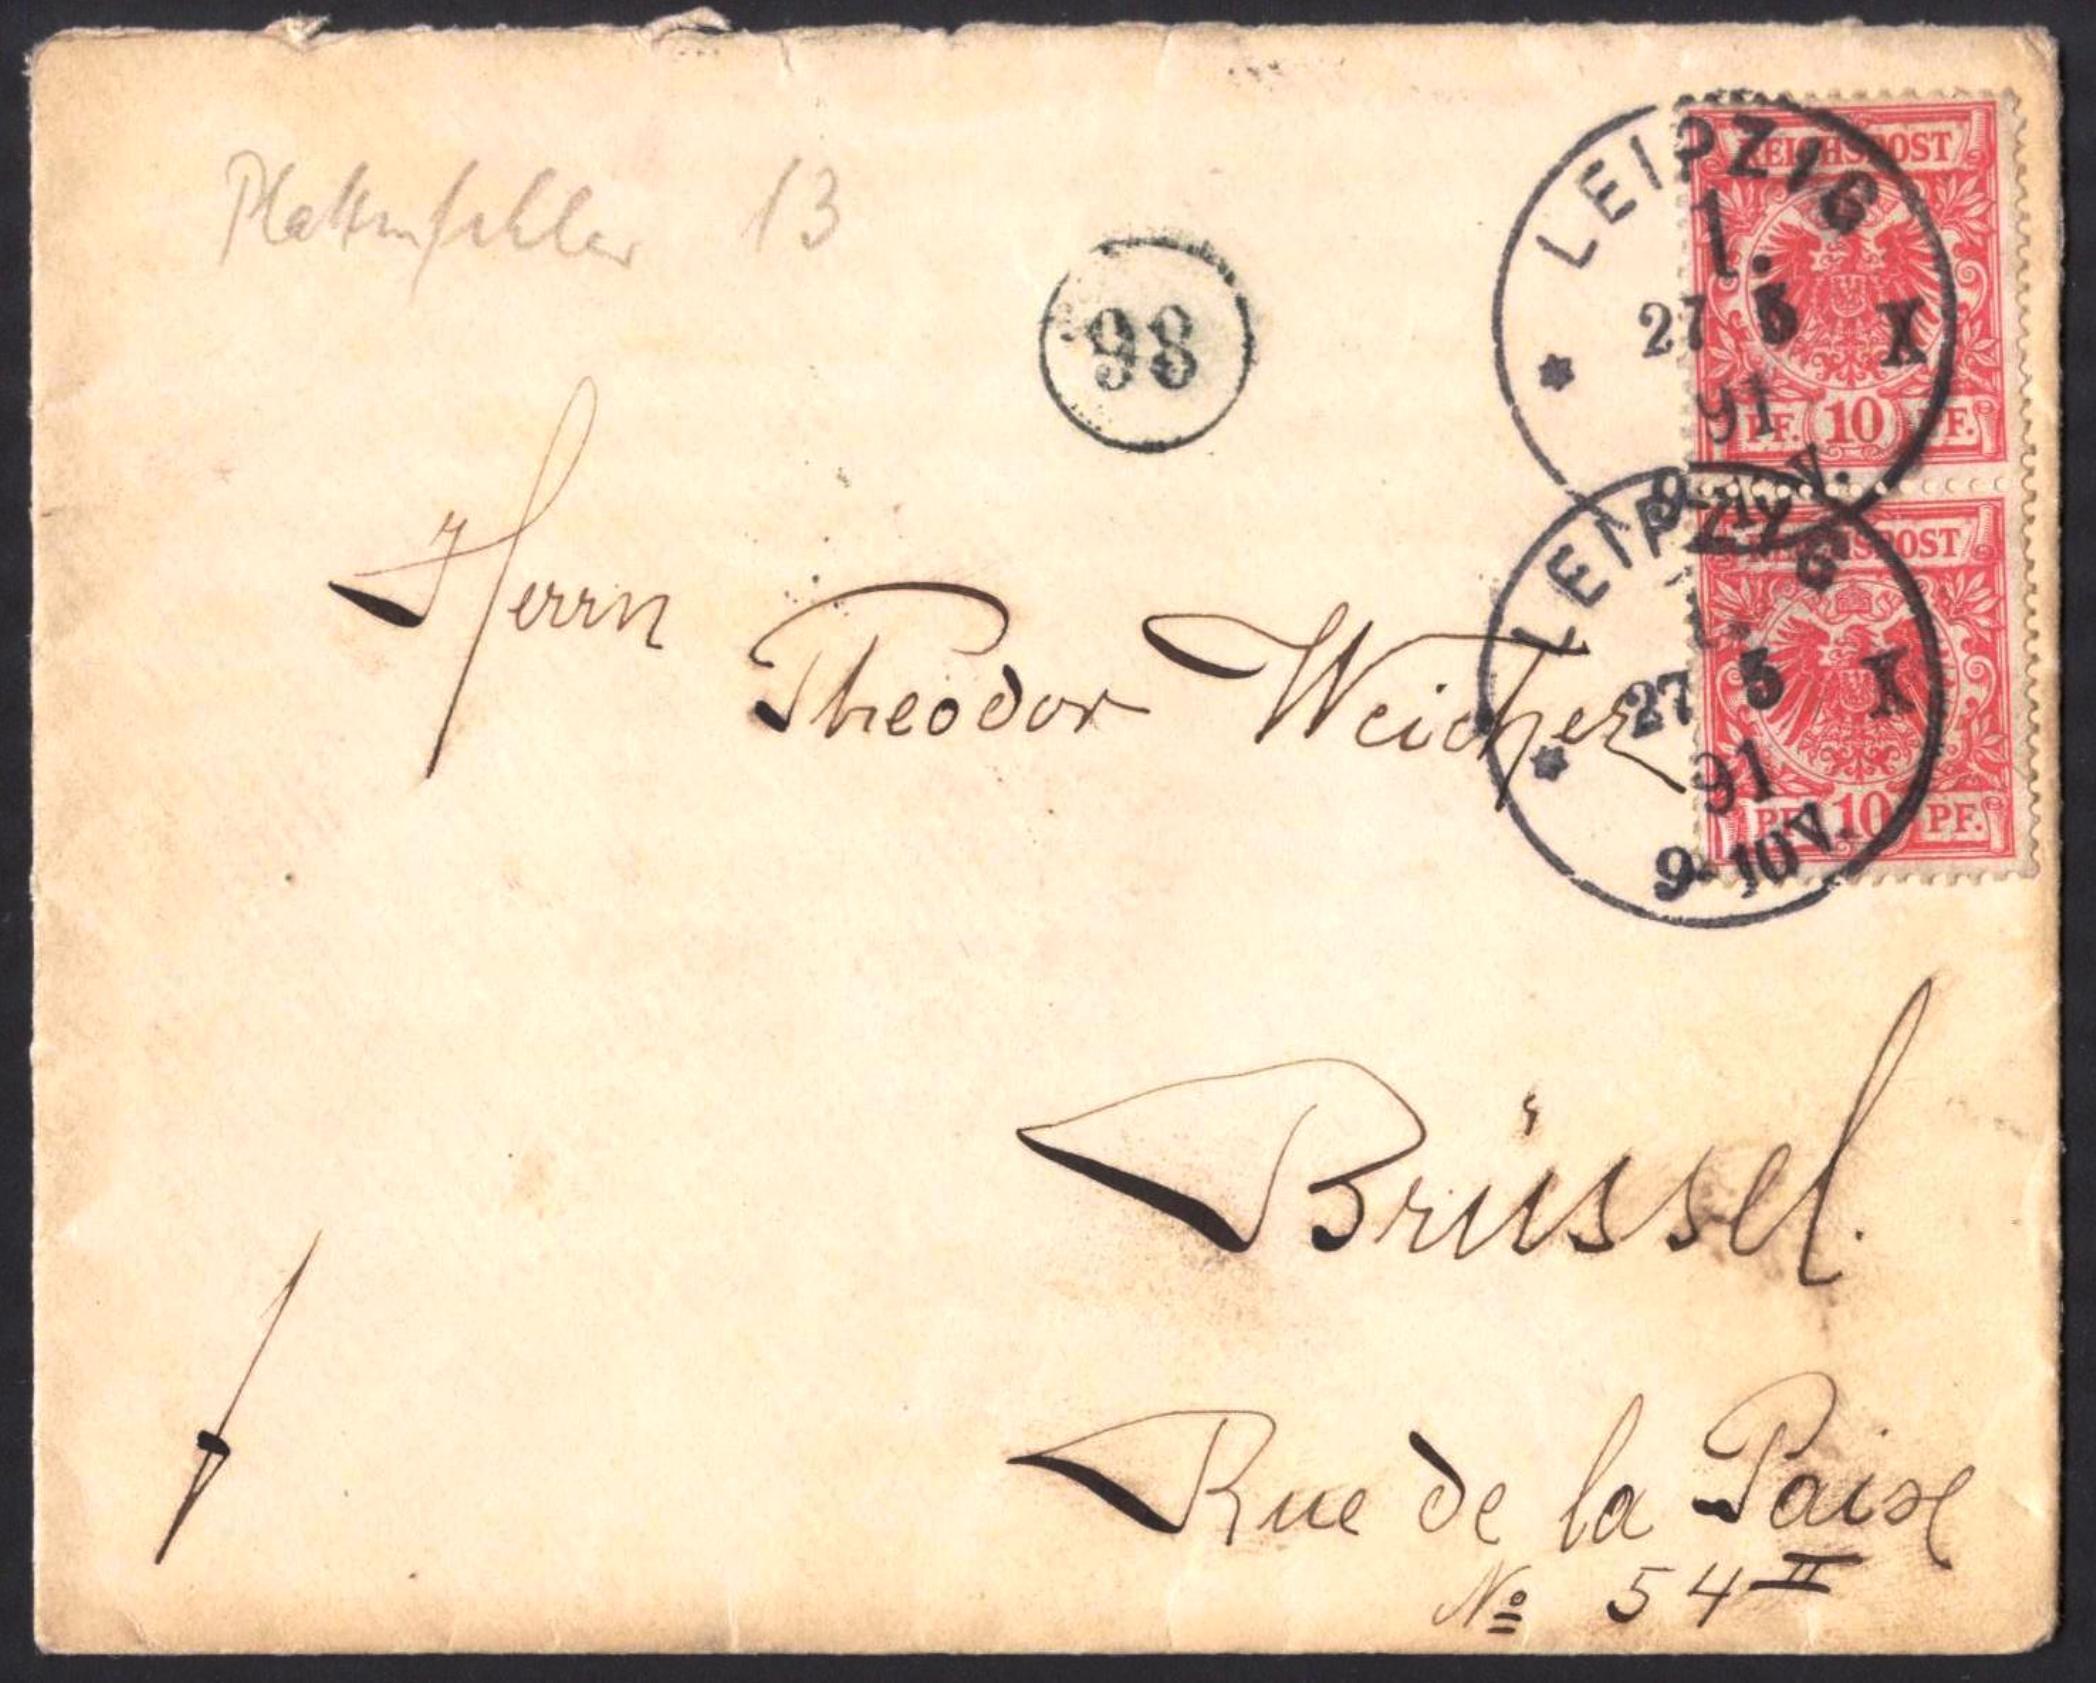 Plattenfehler 13
98
LEIPZIG
1.
27 5 X
91
9-10V.
REICHSPOST
PF. 10 PF.
LEIPZIG
1.
27 5 X
91
9-10V.
REICHSPOST
PF. 10 PF.
Herrn
Theodor Weicher
Brüssel.
Rue de la Paix
No 54 II